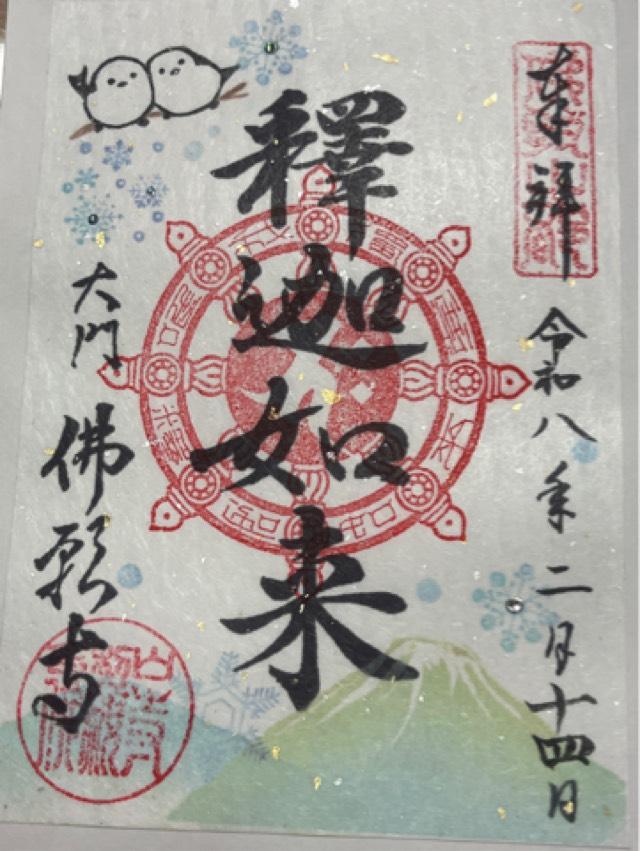 奉拝
令和八年二月十四日
釋迦如来
大門
佛願寺